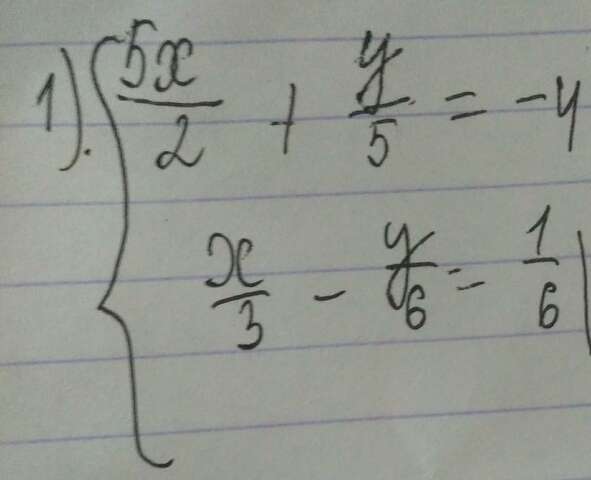 1). { 5x/2 + y/5 = -4
x/3 - y/6 = 1/6